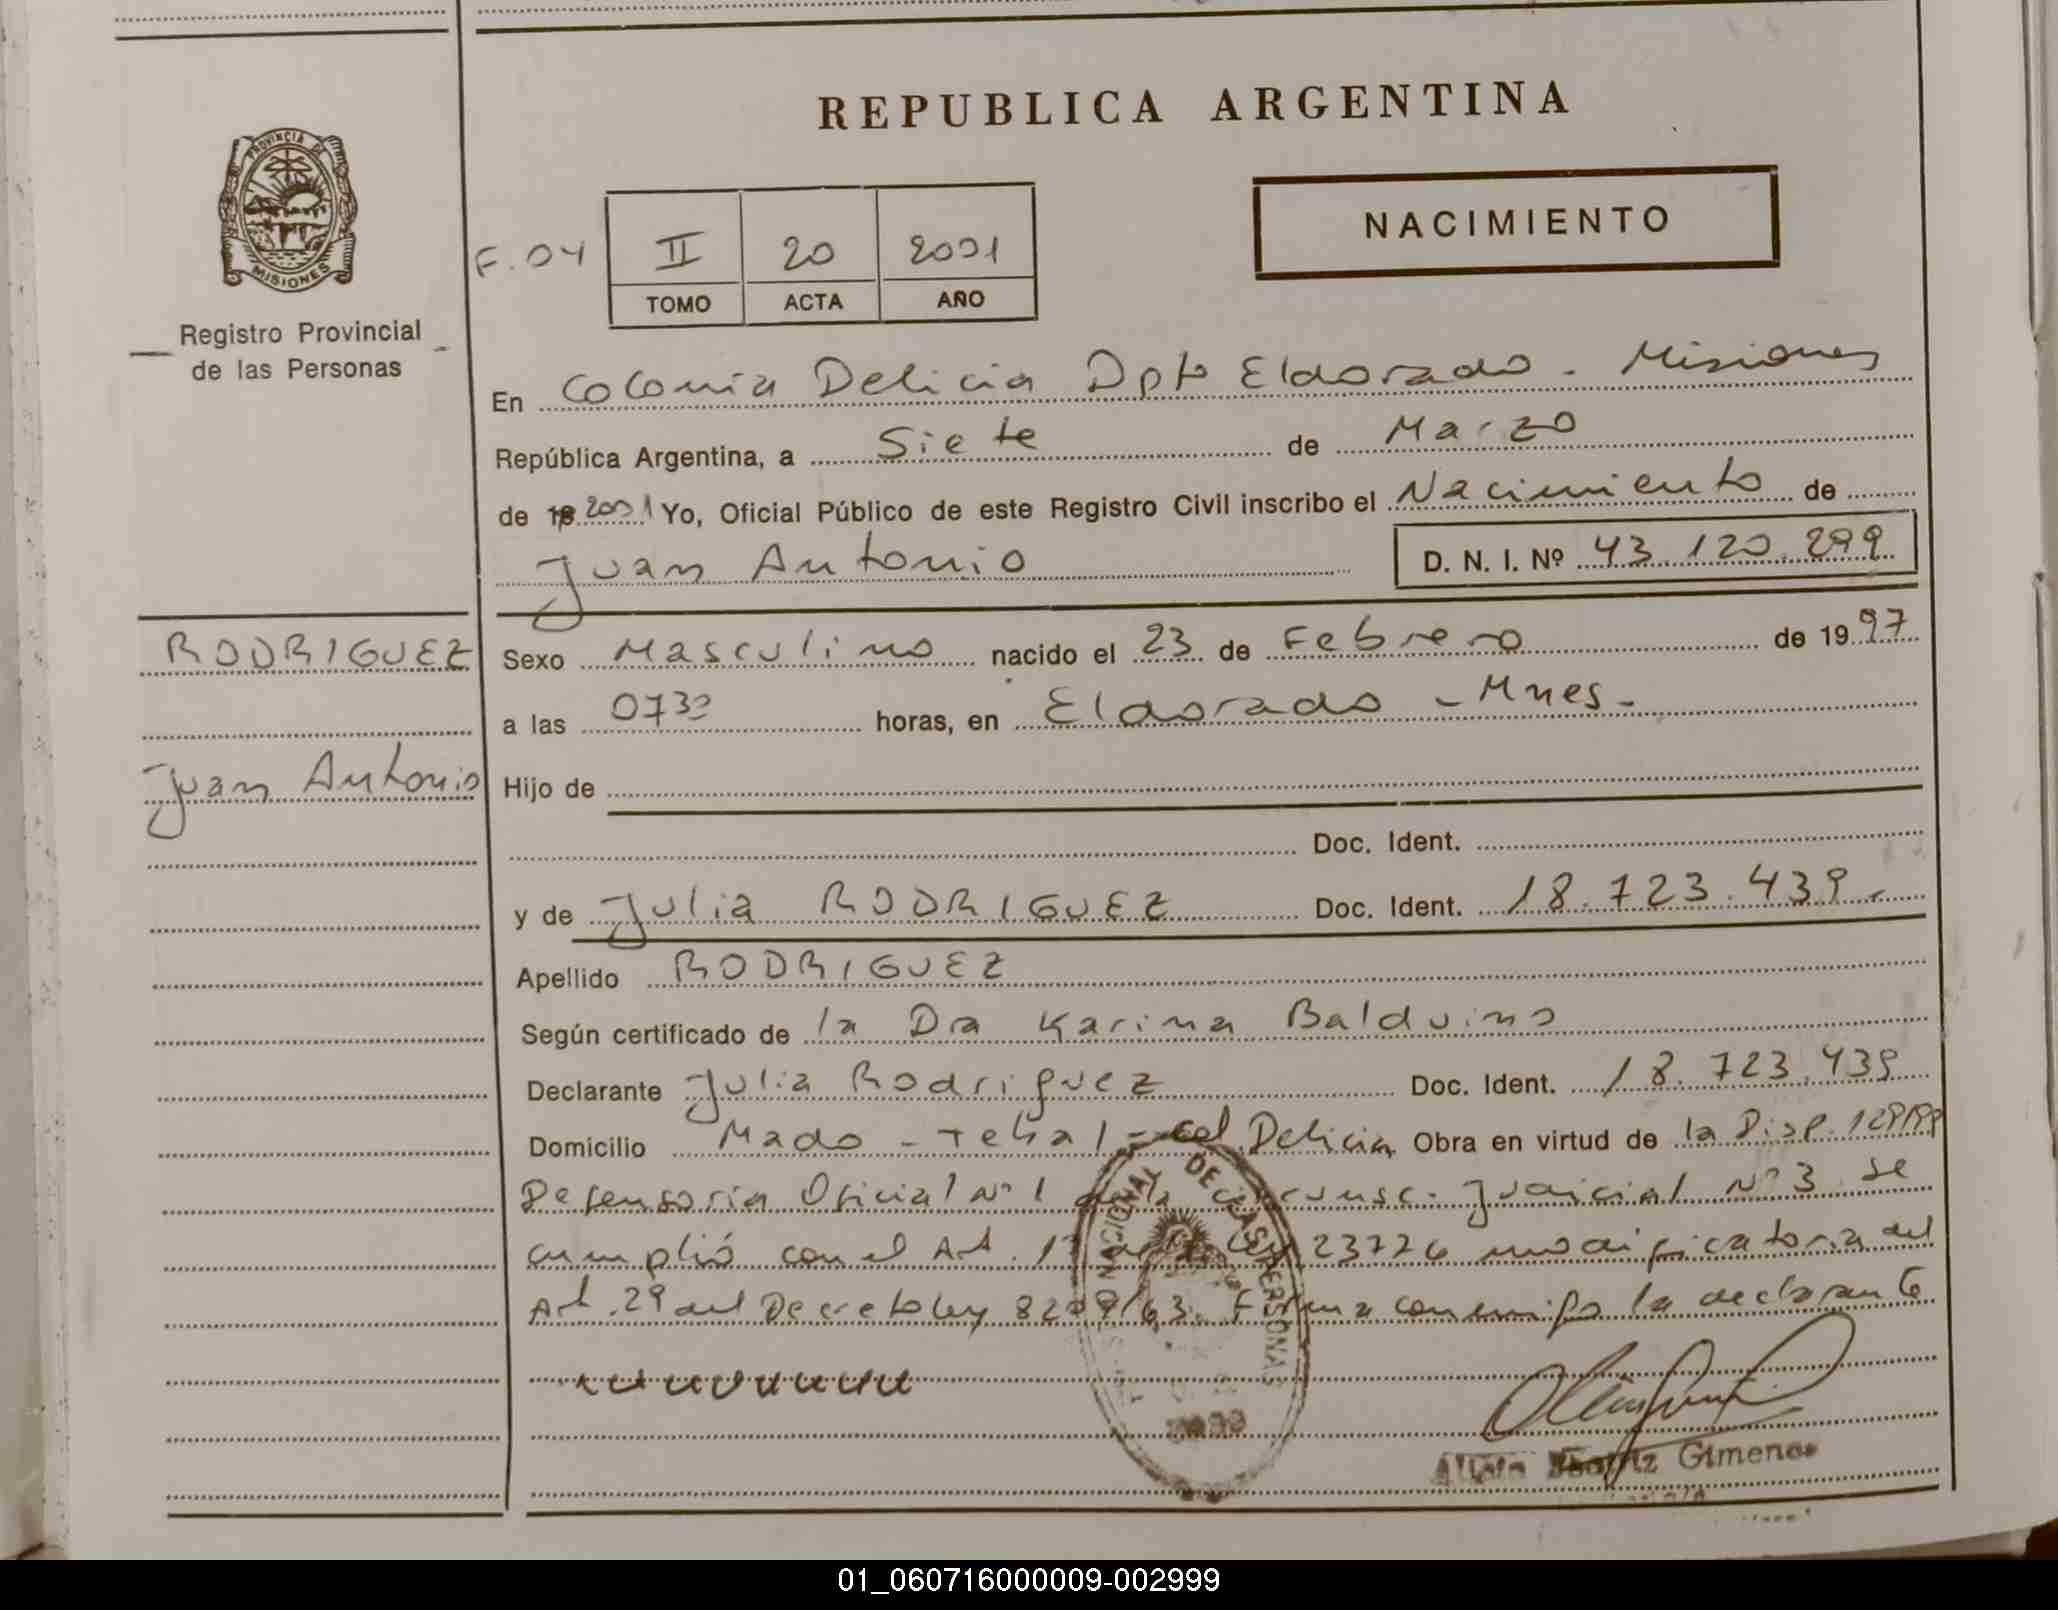 REPUBLICA ARGENTINA
PROVINCIA DE
MISIONES
Registro Provincial
de las Personas
NACIMIENTO
F. 04 II 20 2001
TOMO ACTA AÑO
En Colonia Delicia Dpto Eldorado - Misiones
República Argentina, a Siete de Marzo
de 19 2001 Yo, Oficial Público de este Registro Civil inscribo el Nacimiento de
Juan Antonio D. N. I. Nº 43.120.299
RODRIGUEZ
Juan Antonio
Sexo Masculino nacido el 23 de Febrero de 1997
a las 0730 horas, en Eldorado - Mnes -
Hijo de
Doc. Ident.
y de Julia RODRIGUEZ Doc. Ident. 18.723.439.-
Apellido RODRIGUEZ
Según certificado de la Dra Karina Balduino
Declarante Julia Rodriguez Doc. Ident. 18.723.439
Domicilio Mado - - Col Delicia Obra en virtud de la Disp. 129/99
Defensoria Oficial Nº 1 de la circunsc. Judicial Nº 3 se
cumplió con el Art. 1º de la Ley 23776 modificatoria del
Art. 29 del Decreto ley 8209/63. Firma conmigo la declarante
NACIONAL DE LAS PERSONAS
Gimenez
01_060716000009-002999